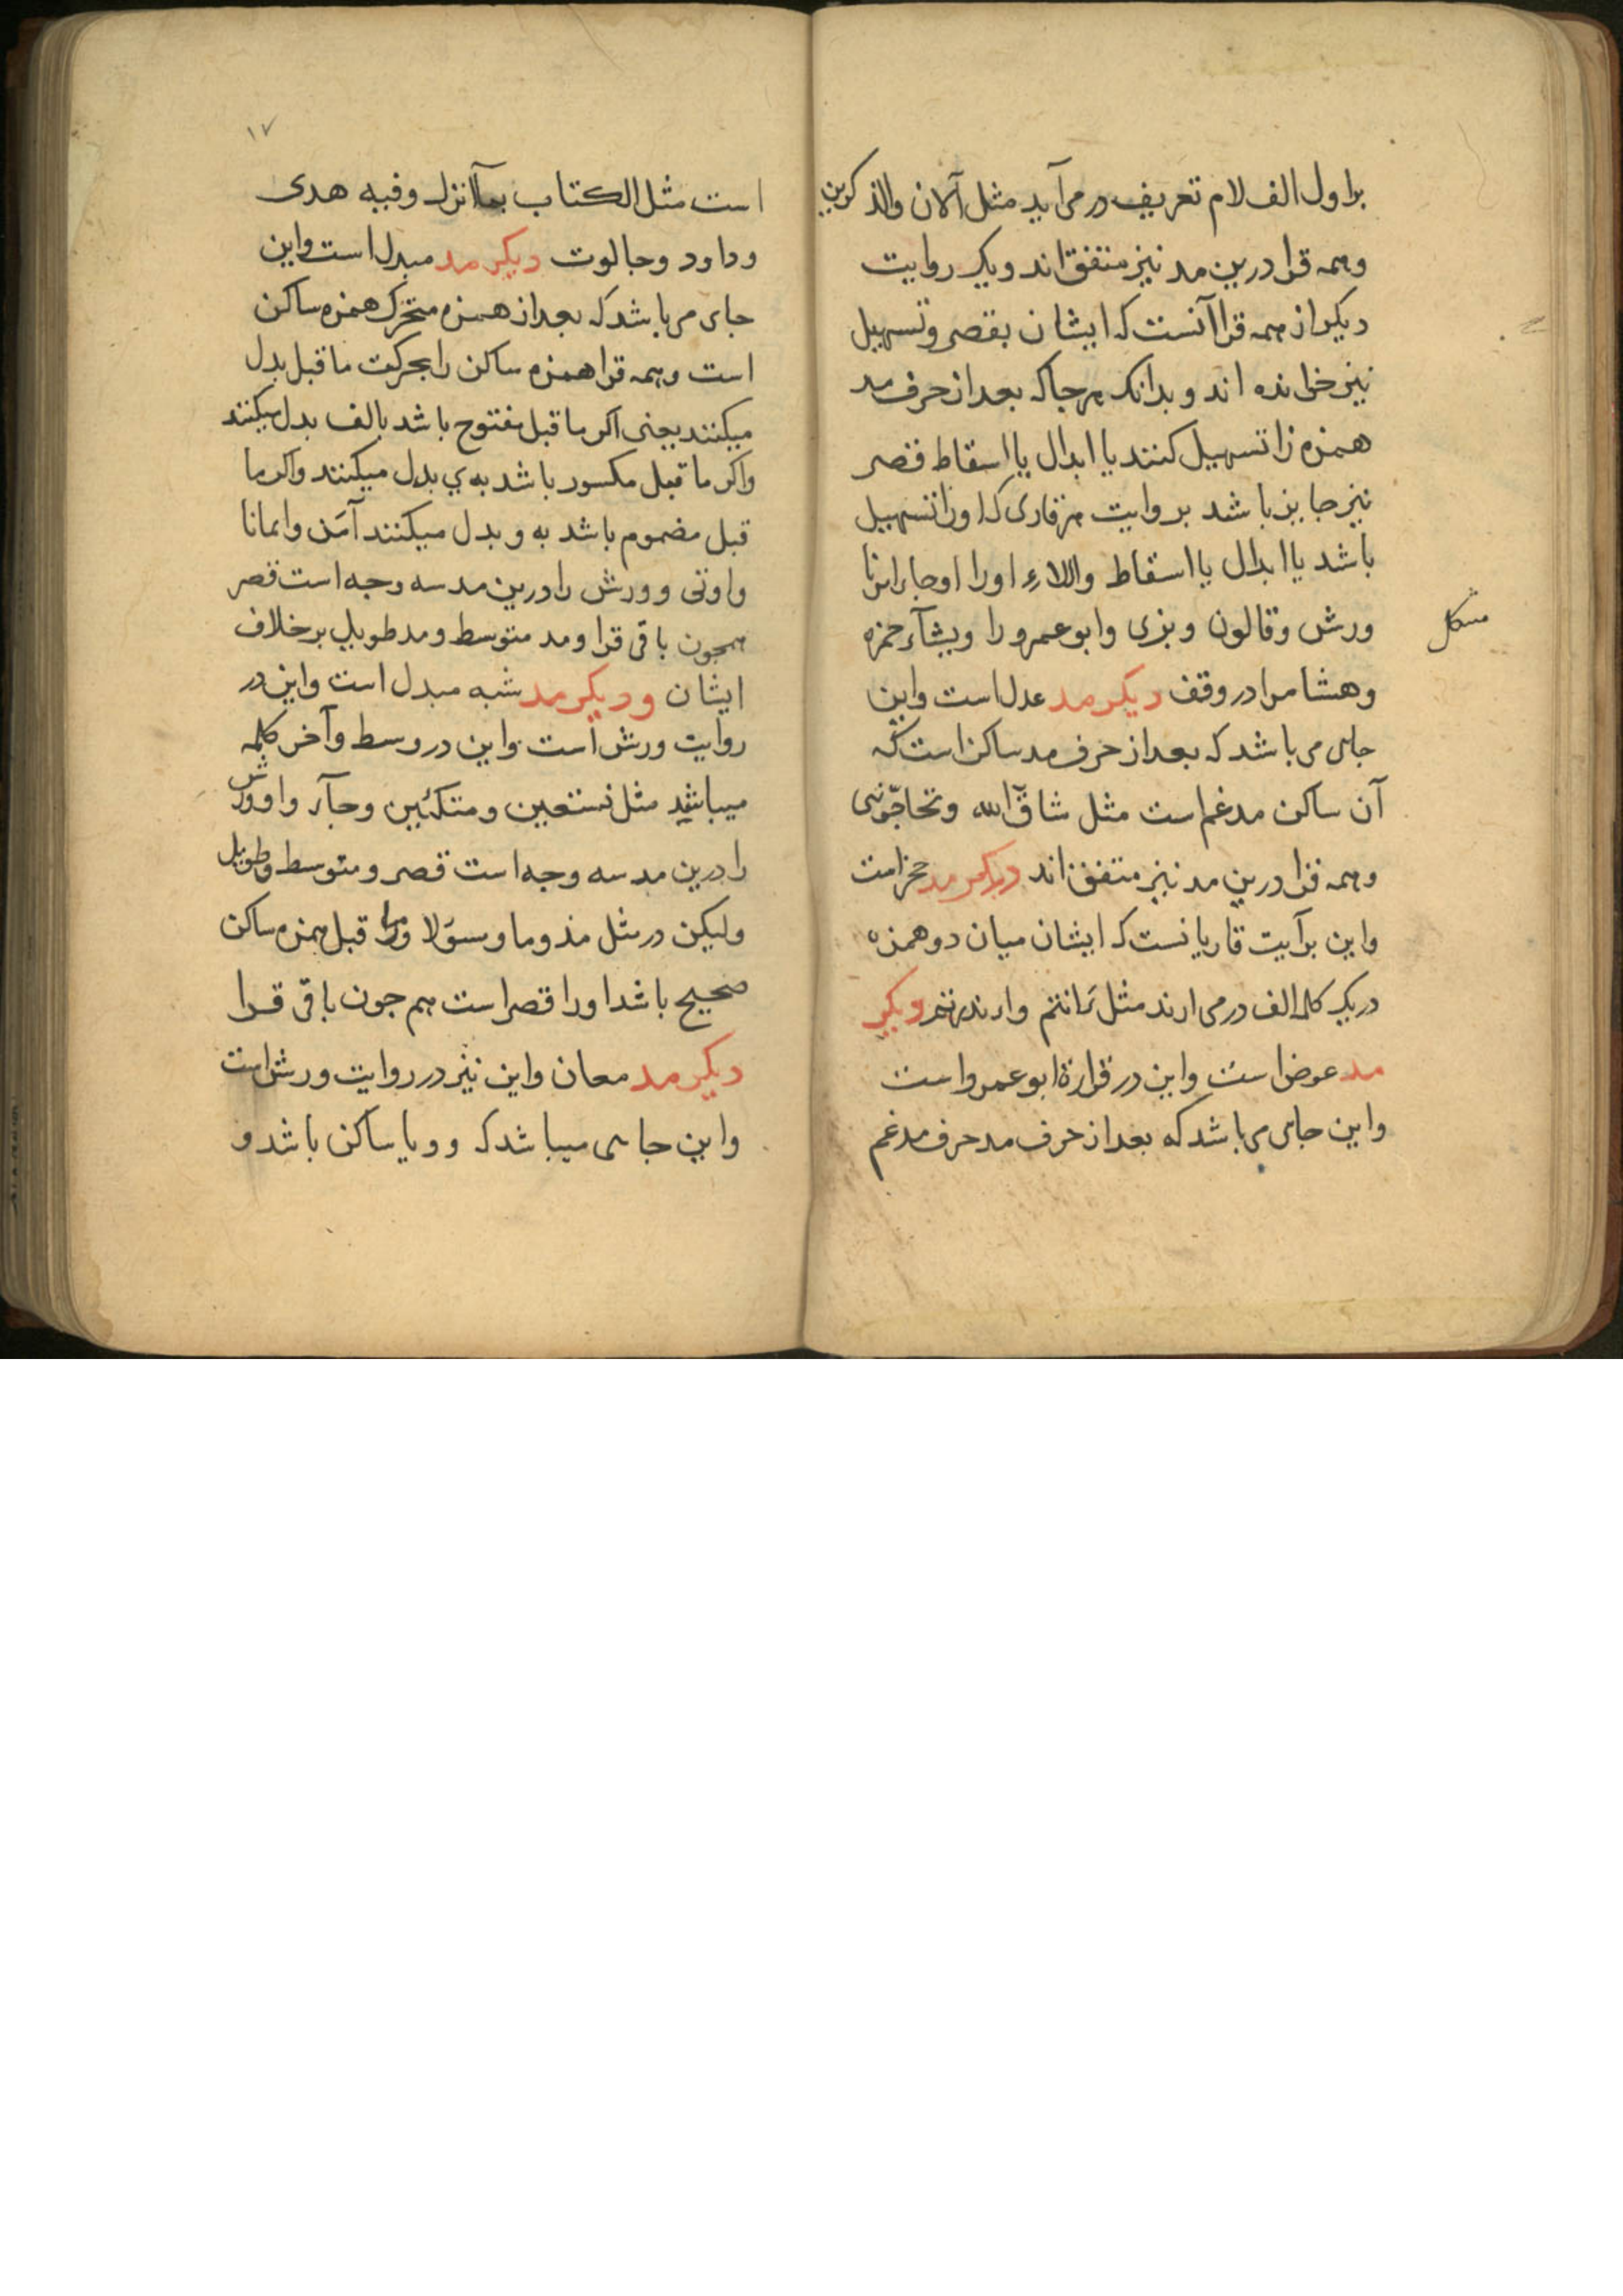 براول الف لام تعریف در می آید مثل آلان والذکرین
وهمه قرا درین مد نیز متفق اند ویک روایت
دیکر از همه قرا آنست که ایشان بقصر وتسهیل
نیز خوانده اند و بدانک هرجا که بعد از حرف مد
همزه را تسهیل کنند یا ابدال یا اسقاط قصر
نیز جایز باشد بروایت هر قاری که او را تسهیل
باشد یا ابدال یا اسقاط واللاء اورا اوجا
ورش وقالون وبزی وابوعمرو را ویشآء حمزه
مشکل
وهشام را در وقف دیکر مد عدل است واین
جایی می باشد که بعد از حرف مد ساکن است که
آن ساکن مدغم است مثل شآقّ الله وتحآجّونی
وهمه قرا درین مد نیز متفق اند دیکر مد حجز است
واین برآیت قاریانست که ایشان میان دو همزه
در یک کلمه الف در می ارند مثل
مد عوض است واین در قراءة ابو عمرو است
واین جایی می باشد که بعد از حرف مد حرف مدغم
١٧
است مثل الکتاب بمآ انزل وفیه هدی
وداود وجالوت دیکر مد مبدل است واین
جای می باشد که بعد از همزه متحرک همزه ساکن
است وهمه قرا همزه ساکن را بحرکت ما قبل بدل
میکنند یعنی اکر ما قبل مفتوح باشد بالف بدل میکنند
واکر ما قبل مکسور باشد به ي بدل میکنند واکر ما
قبل مضموم باشد به و بدل میکنند آمَن وایمانا
واوتی وورش را درین مد سه وجه است قصر
همچون باقی قرا ومد متوسط ومد طویل برخلاف
ایشان ودیکر مد شبه مبدل است واین در
روایت ورش است واین در وسط وآخر کلمه
میباشد مثل نستعین ومتکئین وجآء واو ورش
را درین مد سه وجه است قصر ومتوسط وطویل
ولیکن در مثل مذوما ومسؤلا قبل همزه ساکن
صحیح باشد او را قصر است هم جون باقی قرا
دیکر مد معان واین نیز در روایت ورش است
واین جایی میباشد که و ویا ساکن باشد و